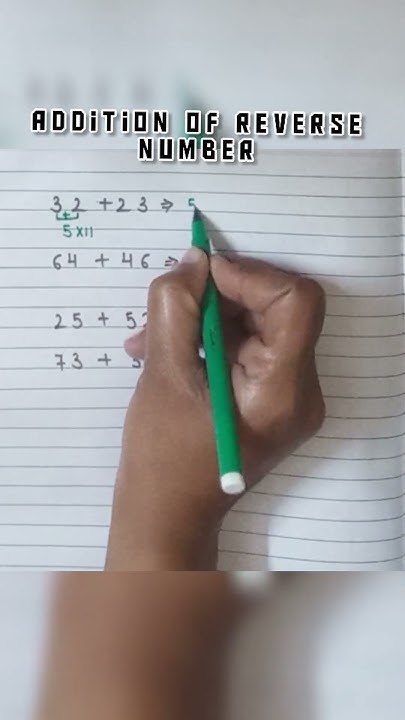 ADDITION OF REVERSE
NUMBER
32 + 23 ⇒ 5
+
5 x 11
64 + 46 ⇒
25 + 5
73 +